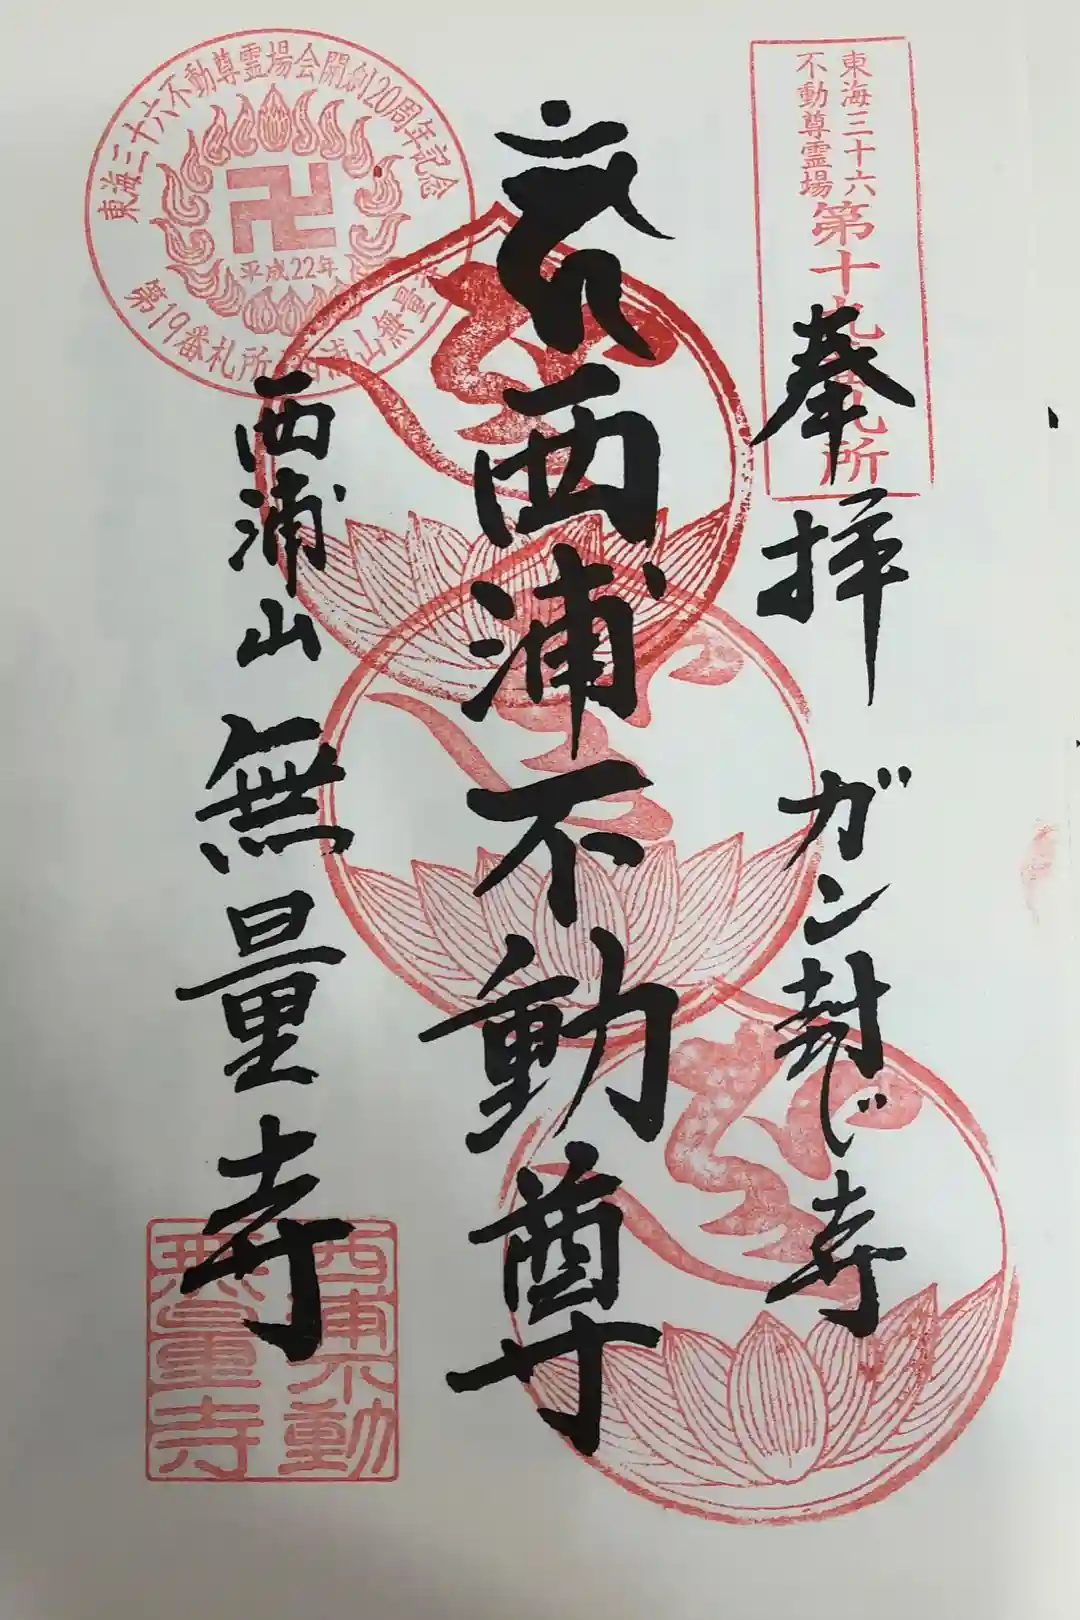 東海三十六
不動尊霊場
第十九番札所
奉拝
ガン封じ寺
西浦不動尊
東海三十六不動尊霊場会開創20周年記念
卍
平成22年
第19番札所 西浦山無量寺
西浦山
無量寺
西浦不動
無量寺